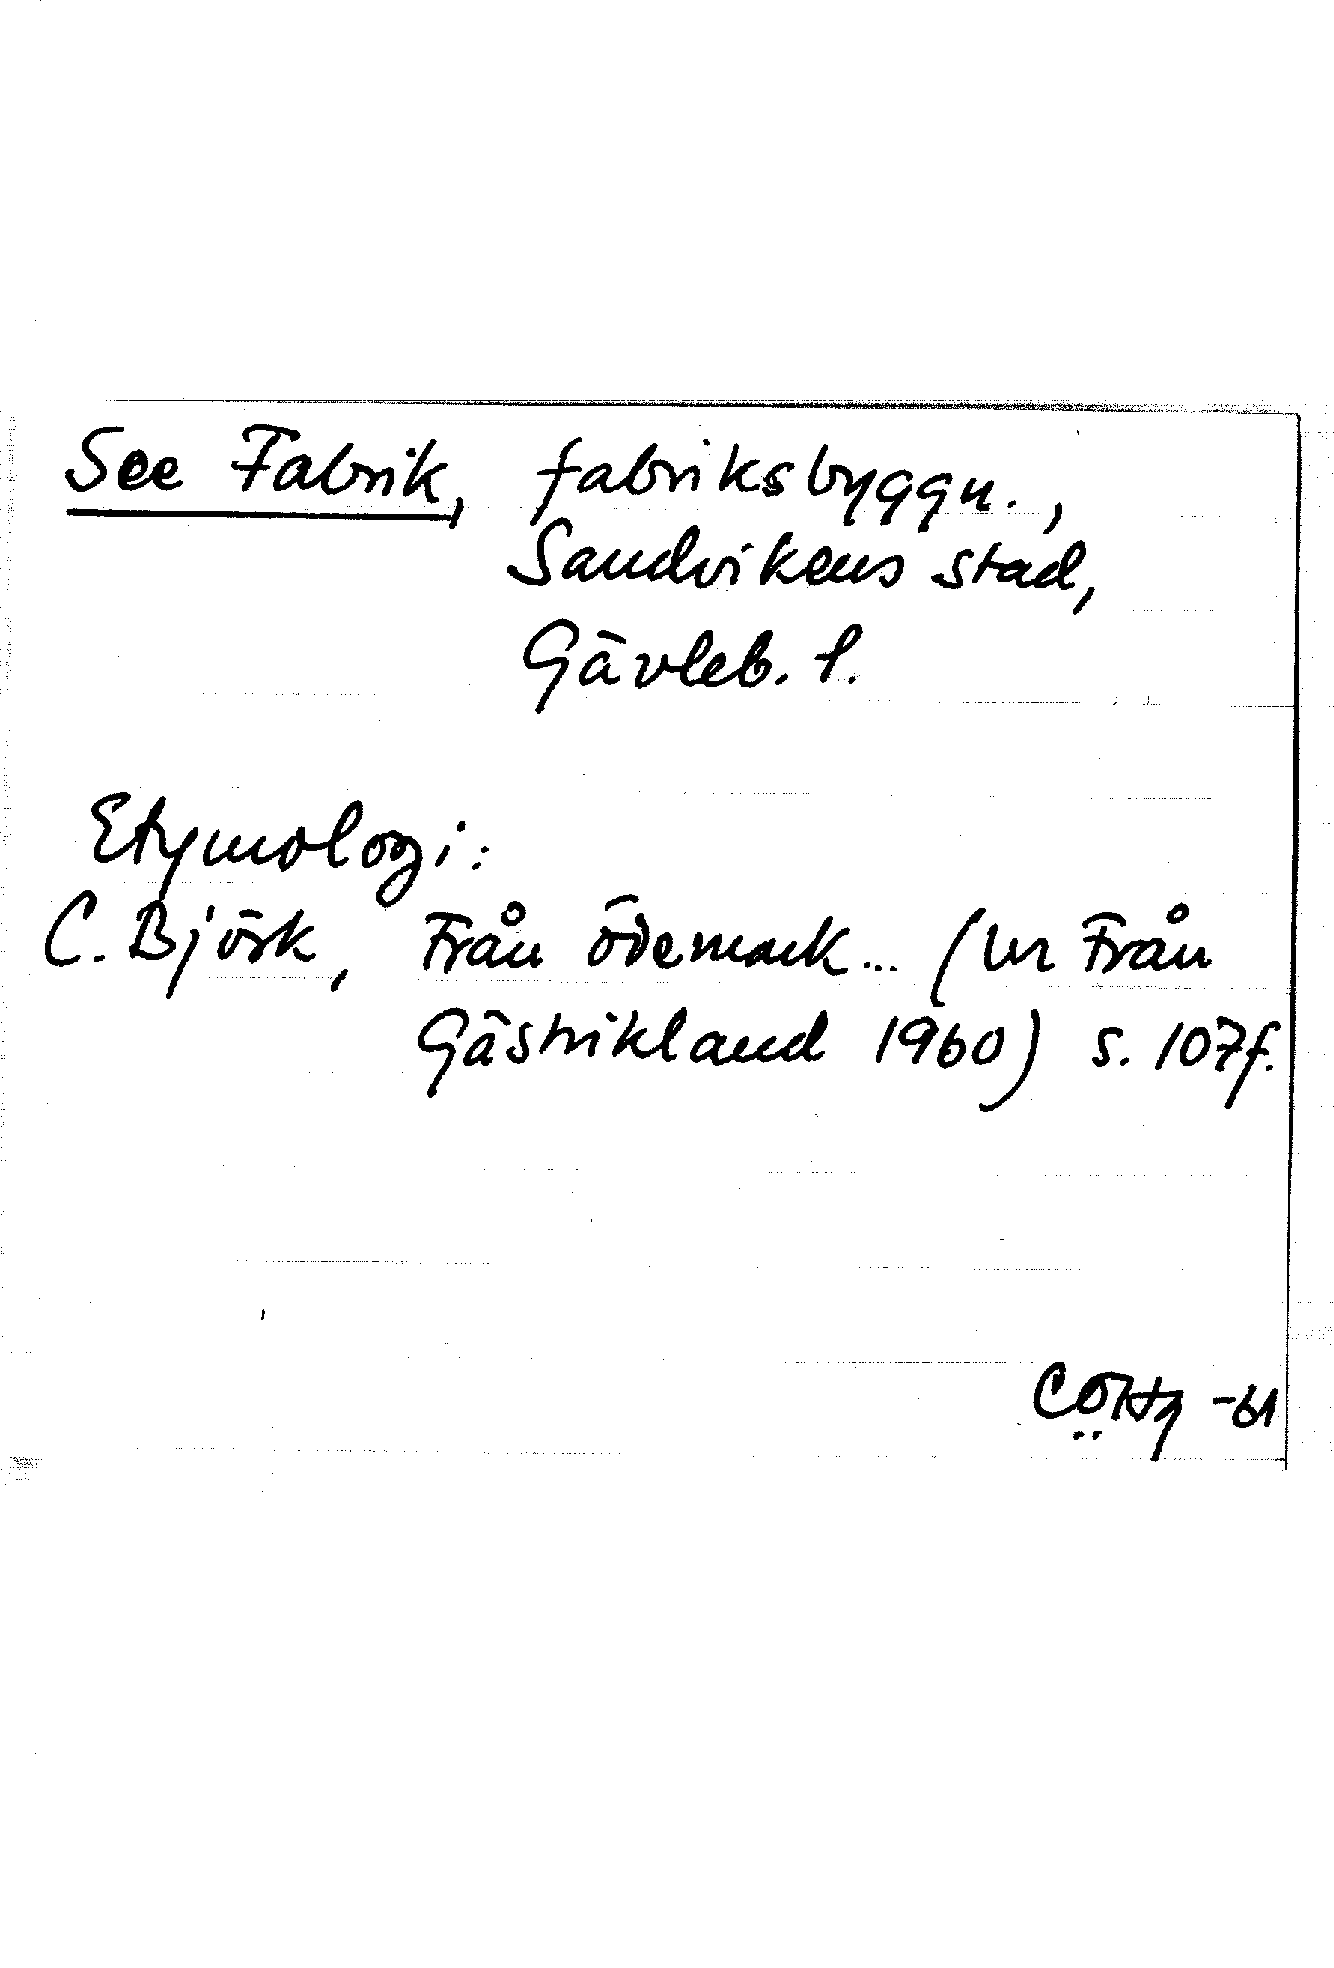 See Fabrik, fabriksbyggn.,
Sandvikens stad,
Gävleb. l.
Etymologi:
C. Björk, Från ödemark... (ur Från
Gästrikland 1960) s. 107f.
-61